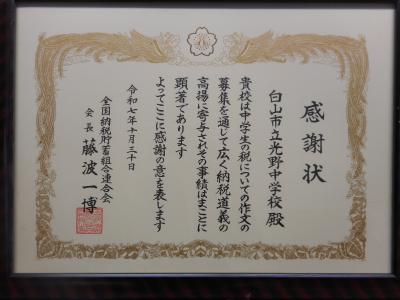 感謝状
白山市立光野中学校 殿
貴校は中学生の税についての作文の
募集を通じて広く納税道義の
高揚に寄与されその事績はまことに
顕著であります
よってここに感謝の意を表します
令和七年十月三十日
全国納税貯蓄組合連合会
会長 藤波一博